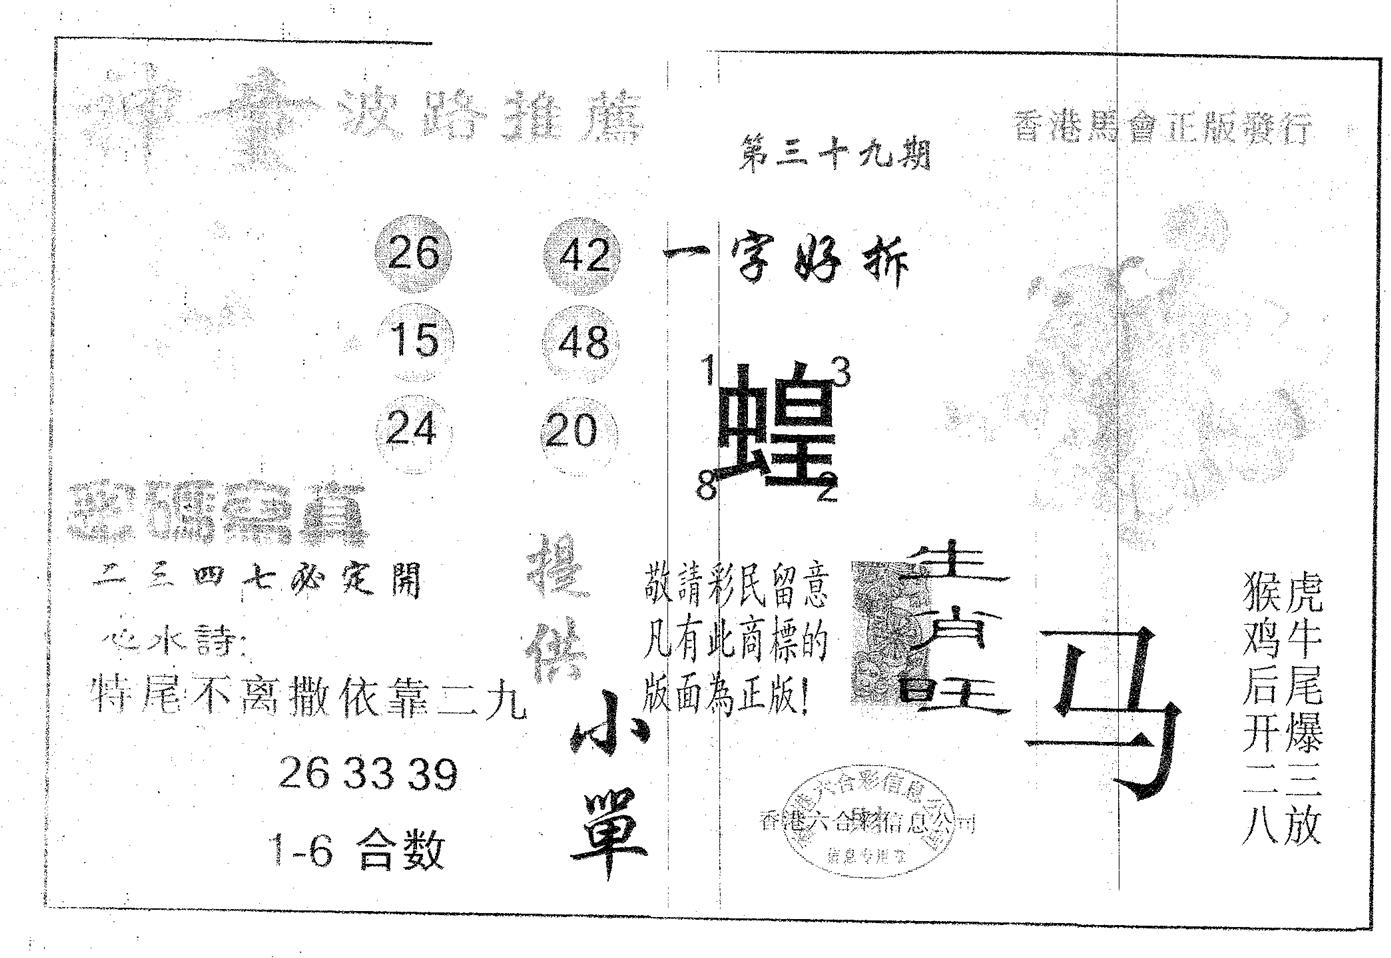 神童波路推薦
第三十九期
香港馬會正版發行
26 42
15 48
24 20
一字好拆
1 3
蝗
8 2
密碼寫真
二三四七必定開
心水詩:
特尾不离撒依靠二九
26 33 39
1-6 合数
提供
小單
敬請彩民留意
凡有此商標的
版面為正版!
生肖旺
马
虎牛尾爆三放
猴鸡后开二八
香港六合彩信息公司
香港六合彩信息公司
信息专用章